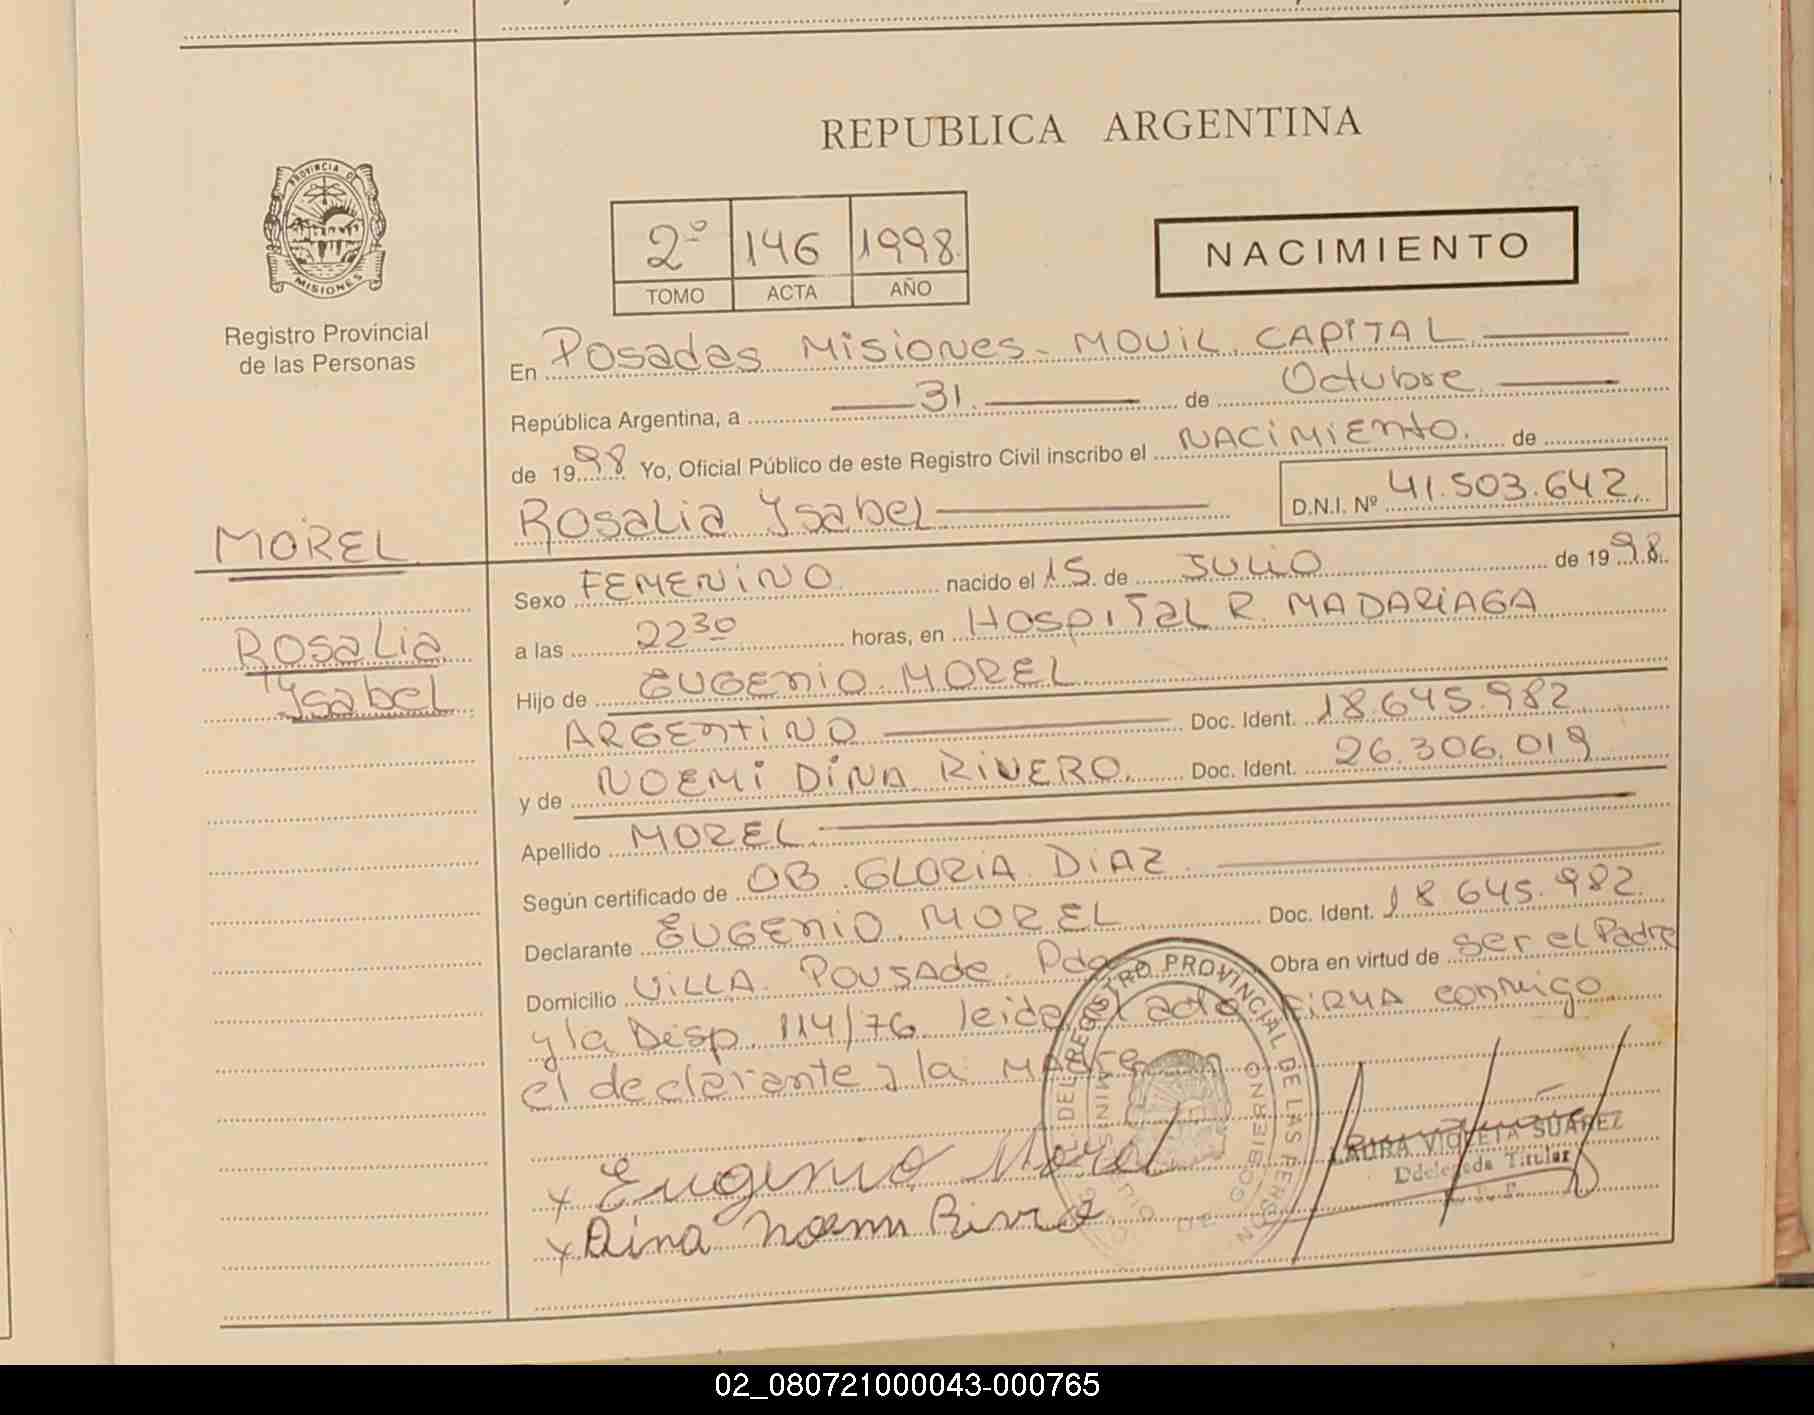 REPUBLICA ARGENTINA
PROVINCIA DE
MISIONES
Registro Provincial
de las Personas
2º 146 1998
TOMO ACTA AÑO
NACIMIENTO
En Posadas Misiones - MOVIL CAPITAL
República Argentina, a 31 de Octubre
de 1998 Yo, Oficial Público de este Registro Civil inscribo el NACIMIENTO de
Rosalia Ysabel D.N.I. Nº 41.503.642
MOREL
Rosalia
Ysabel
Sexo FEMENINO nacido el 15 de JULIO de 1998
a las 22 30 horas, en HOSPITAL R. MADARIAGA
Hijo de EUGENIO MOREL
ARGENTINO Doc. Ident. 18.645.982
y de NOEMI DINA RIVERO Doc. Ident. 26.306.019
Apellido MOREL
Según certificado de OB. GLORIA DIAZ
Declarante EUGENIO MOREL Doc. Ident. 18.645.982
Domicilio VILLA POUSADE Pdas Obra en virtud de ser el Padre
y la Disp. 114/76 leida el acta FIRMA conmigo
el declarante y la MADRE
DEL REGISTRO PROVINCIAL DE LAS
MINISTERIO DE GOBIERNO
x Eugenio Morel
x Dina Noemi Rivero
LAURA VIOLETA SUAREZ
Ddelegada Titular
02_080721000043-000765